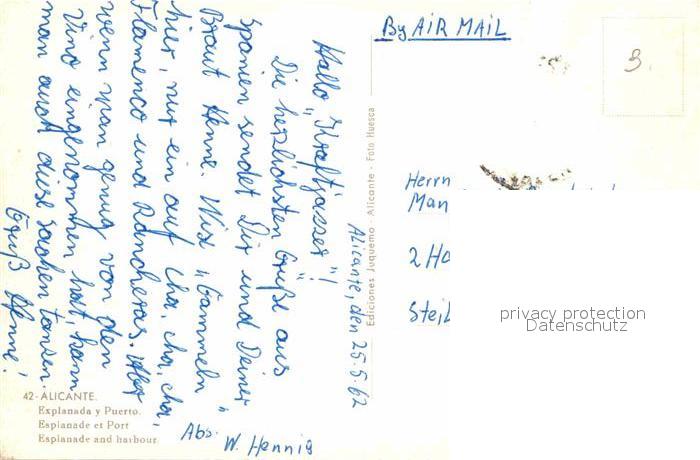 By AIR MAIL
3.
Alicante, den 25.5.62
Hallo "Kraftjasser"!
Die herzlichsten Grüße aus
Spanien sendet Dir und Deiner
Braut Henne. Wir "Gammeln"
hier, nur ein auf Cha, cha, cha,
Flamenco und Rancheras. Aber
wenn man genug von den
Vino eingenommen hat, kann
man auch diese Sachen tanzen.
Gruß Henne!
Abs. W. Hennig
Herrn
Man
2 Ha
Steil
privacy protection
Datenschutz
Ediciones Juquemo - Alicante - Foto Huesca
42 - ALICANTE.
Explanada y Puerto.
Esplanade et Port
Esplanade and harbour